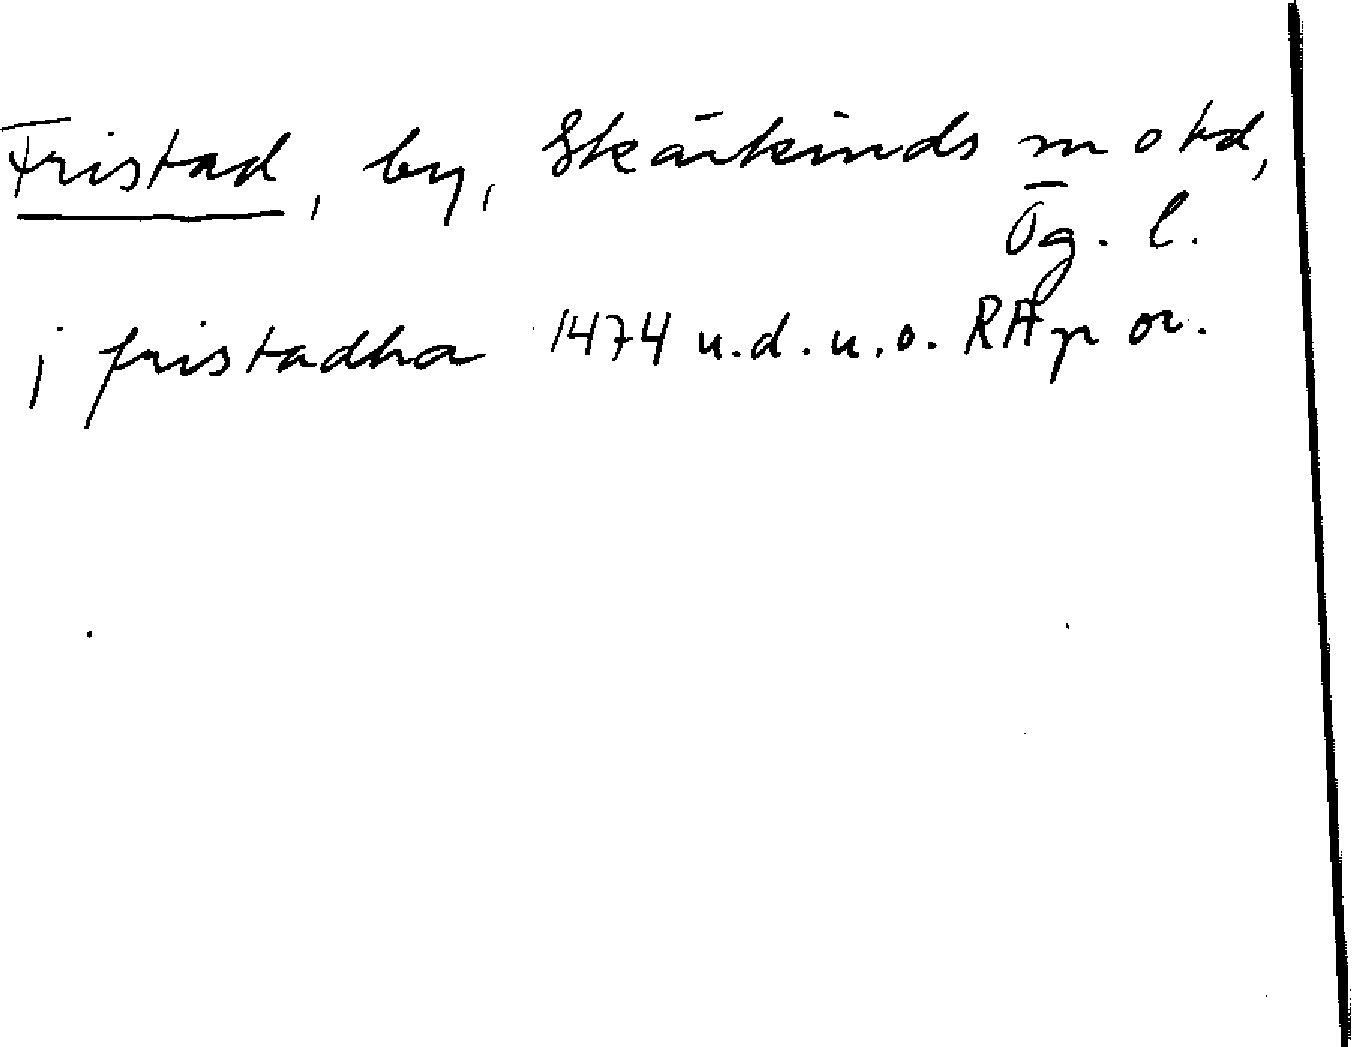 Fristad, by, Skärkinds sn o hd,
Ög. l.
j fristadha 1474 u.d. u.o. RAp or.